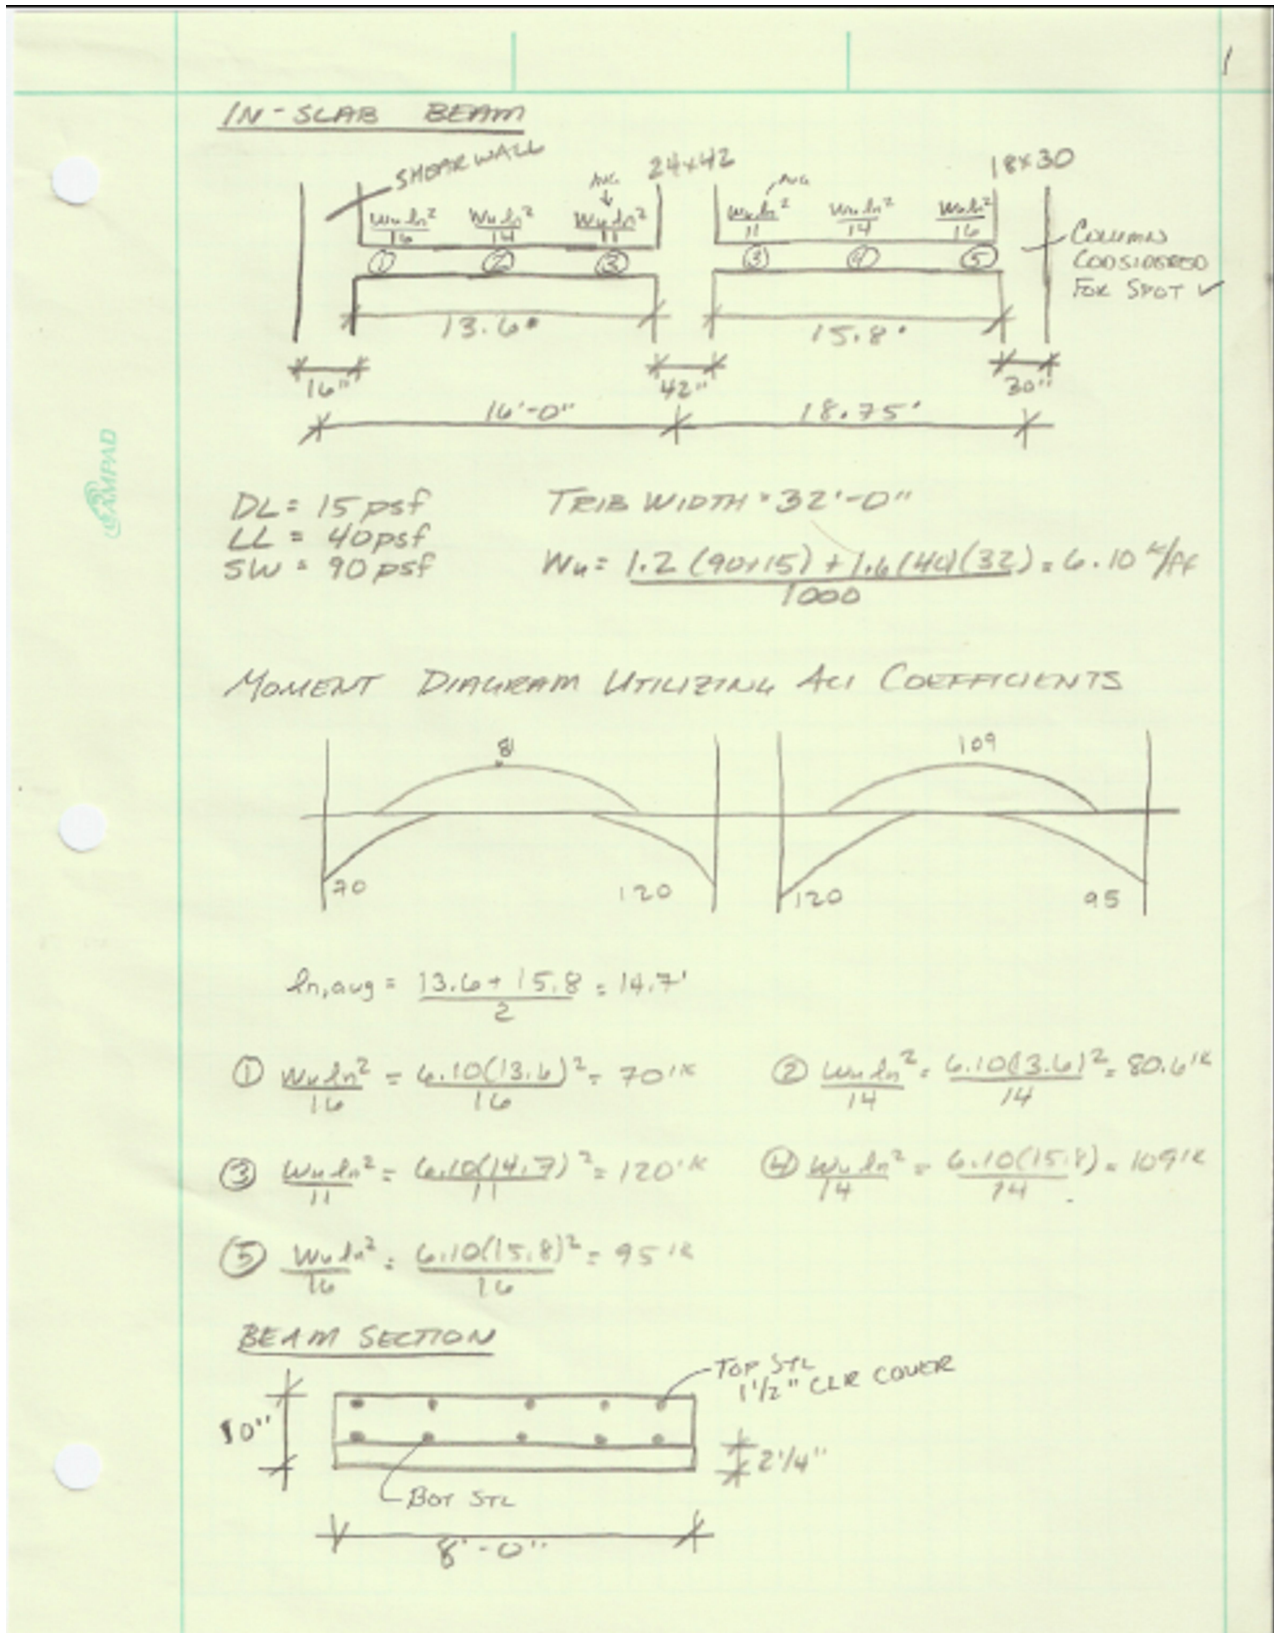 1
IN-SLAB BEAM
SHEAR WALL
24x42
18x30
AVG
AVG
Wuln²/16 Wuln²/14 Wuln²/11 Wuln²/11 Wuln²/14 Wuln²/16
① ② ③ ③ ④ ⑤
COLUMN
CONSIDERED
FOR SPOT ✓
13.6' 15.8'
16" 42" 30"
16'-0" 18.75'
AMPAD
DL = 15 psf TRIB WIDTH = 32'-0"
LL = 40psf
SW = 90 psf Wu = 1.2(90+15) + 1.6(40)(32)/1000 = 6.10 k/ft
MOMENT DIAGRAM UTILIZING ACI COEFFICIENTS
81 109
70 120 120 95
ln,avg = 13.6 + 15.8/2 = 14.7'
① Wuln²/16 = 6.10(13.6)²/16 = 70'k ② Wuln²/14 = 6.10(13.6)²/14 = 80.6'k
③ Wuln²/11 = 6.10(14.7)²/11 = 120'k ④ Wuln²/14 = 6.10(15.8)/14 = 109'k
⑤ Wuln²/16 = 6.10(15.8)²/16 = 95'k
BEAM SECTION
TOP STL
1 1/2" CLR COVER
10"
2 1/4"
BOT STL
8'-0"